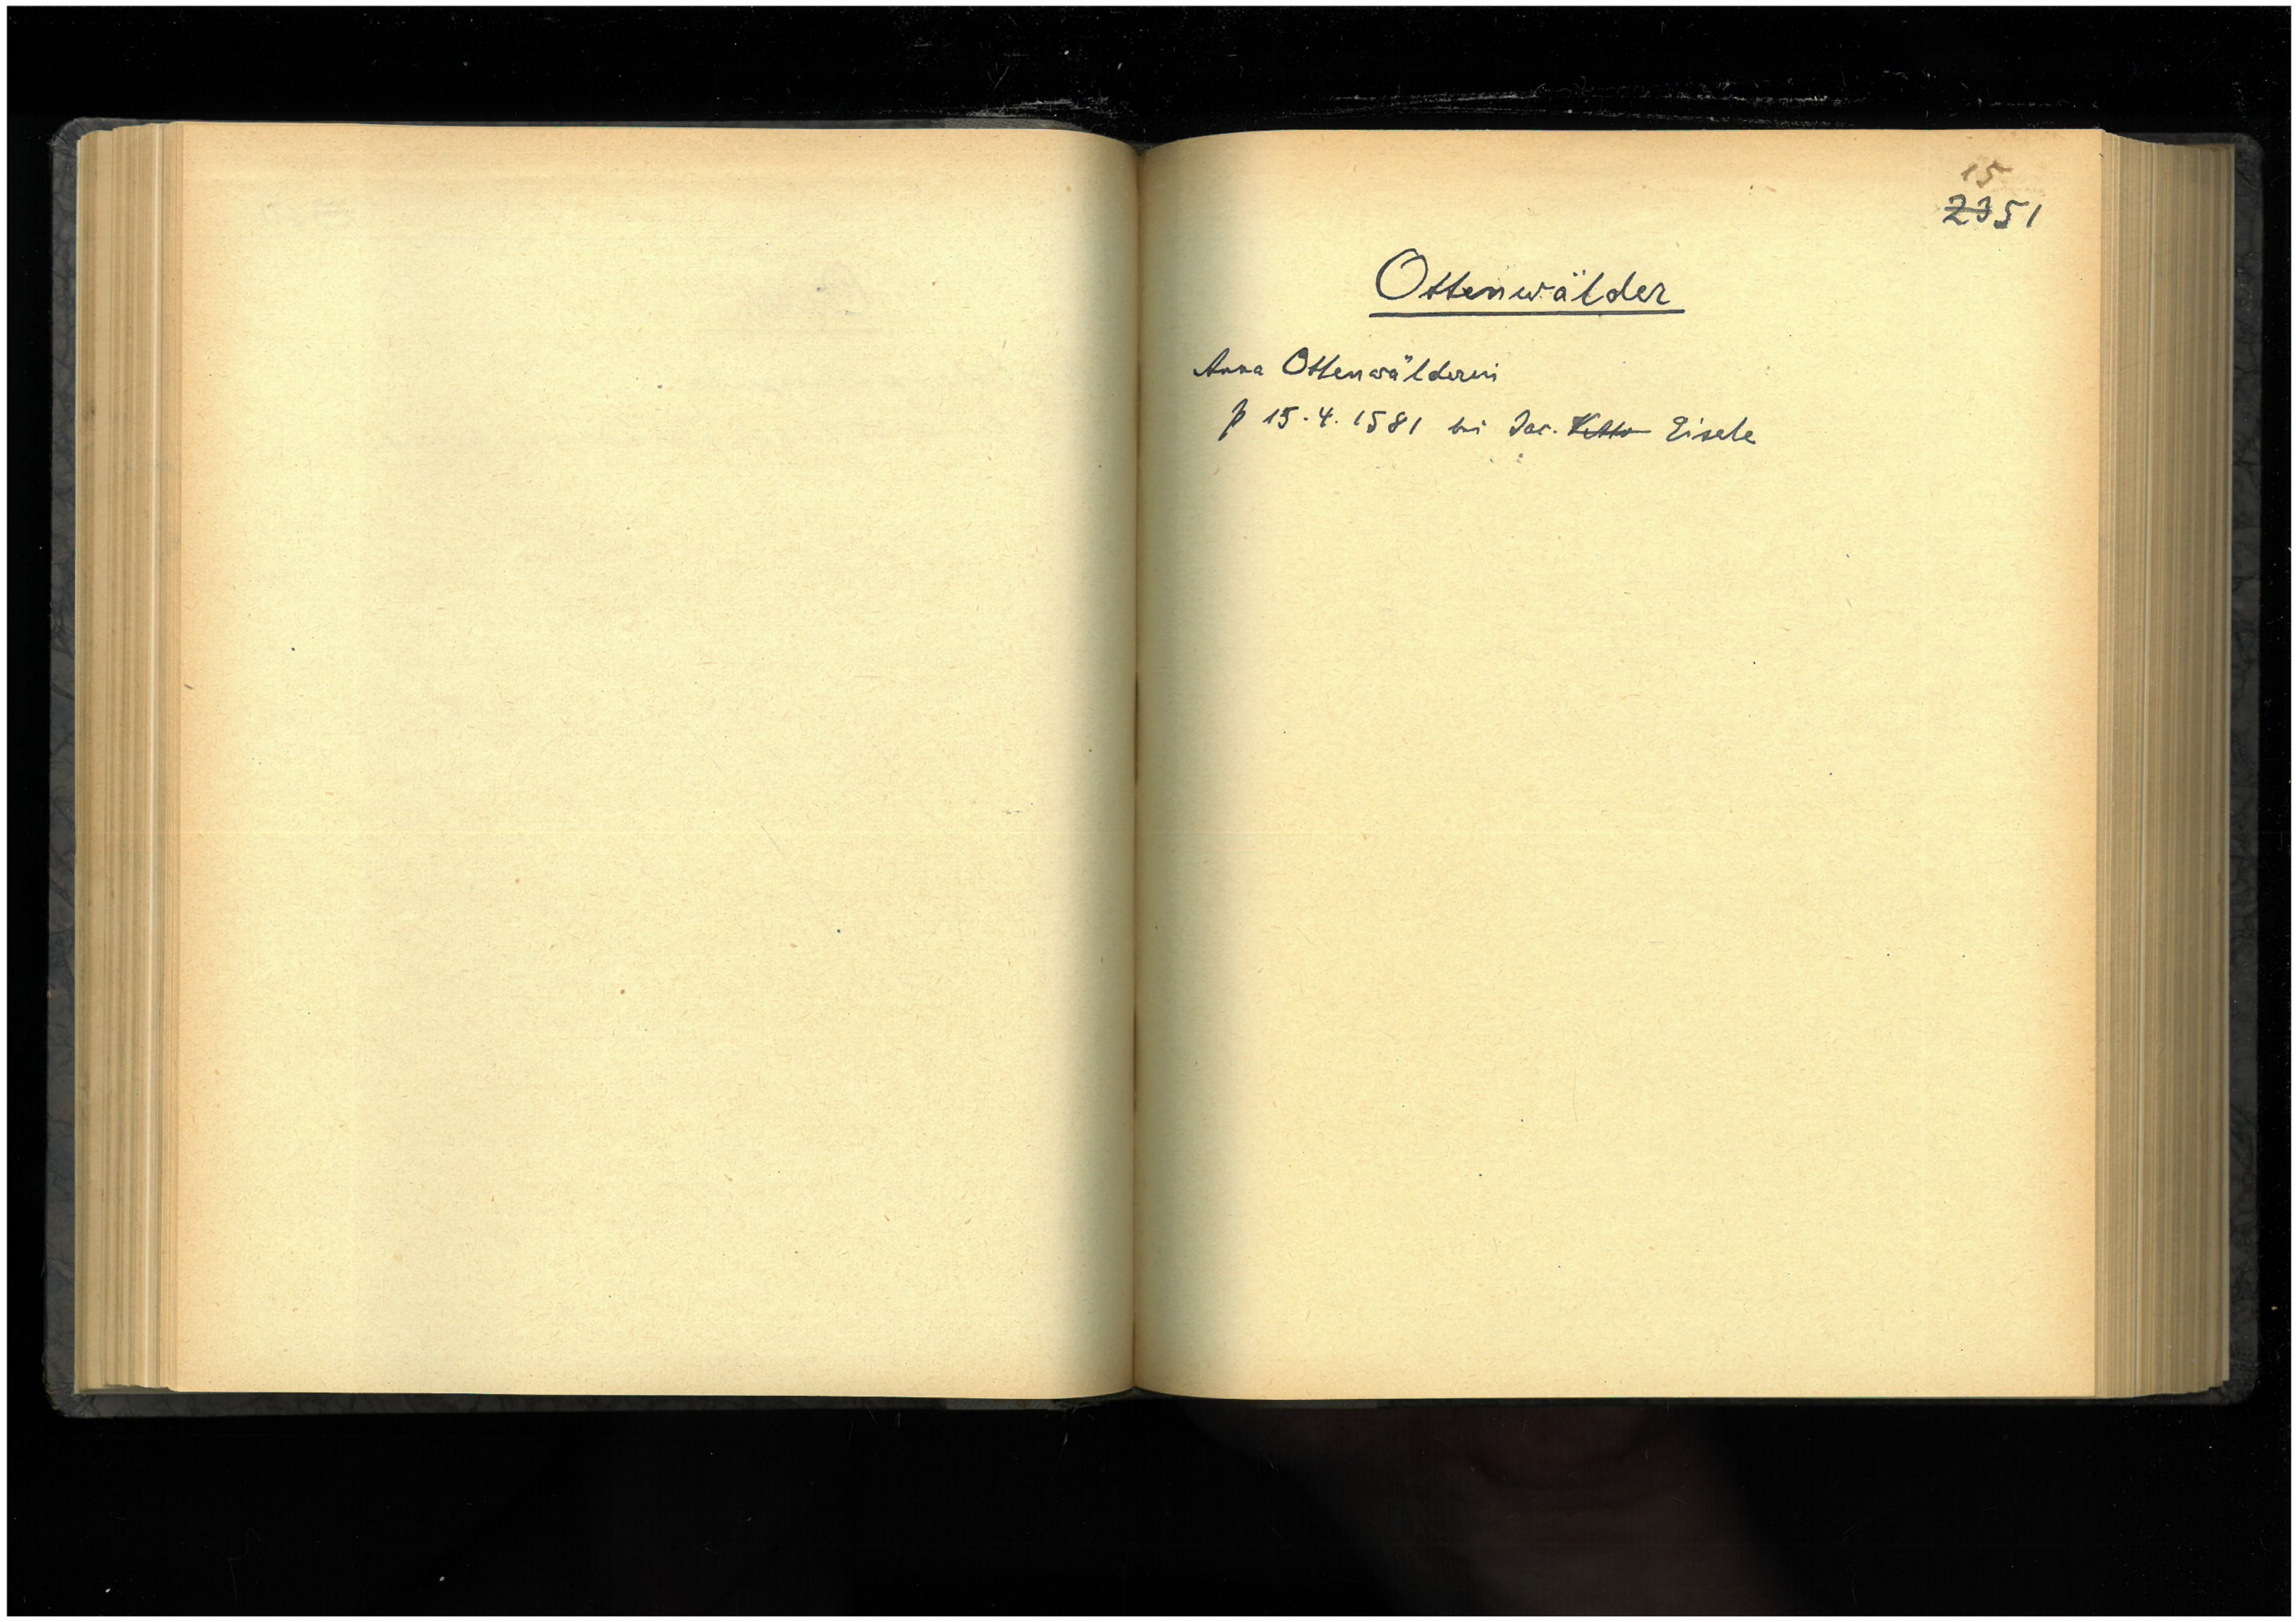 15
2351
Ottenwälder
Anna Ottenwälderin
p 15.4.1581 bei Jac. Eisele